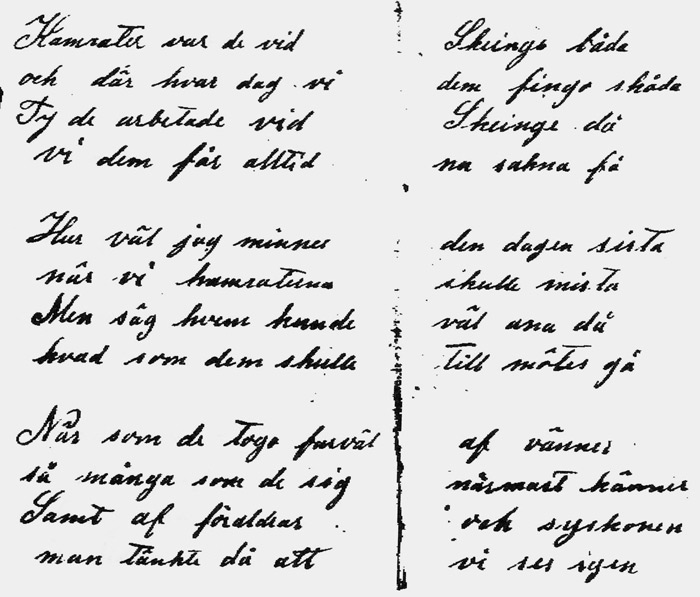 Kamrater var de vid Skeinge båda
och där hvar dag vi dem fingo skåda
Ty de arbetade vid Skeinge då
vi dem får alltid nu sakna få
Hur väl jag minnes den dagen sista
när vi kamraterna skulle mista
Men säg hvem kunde väl ana då
hvad som dem skulle till mötes gå
När som de togo farväl af vänner
så många som de sig närmast känner
Samt af föräldrar och syskonen
man tänkte då att vi ses igen